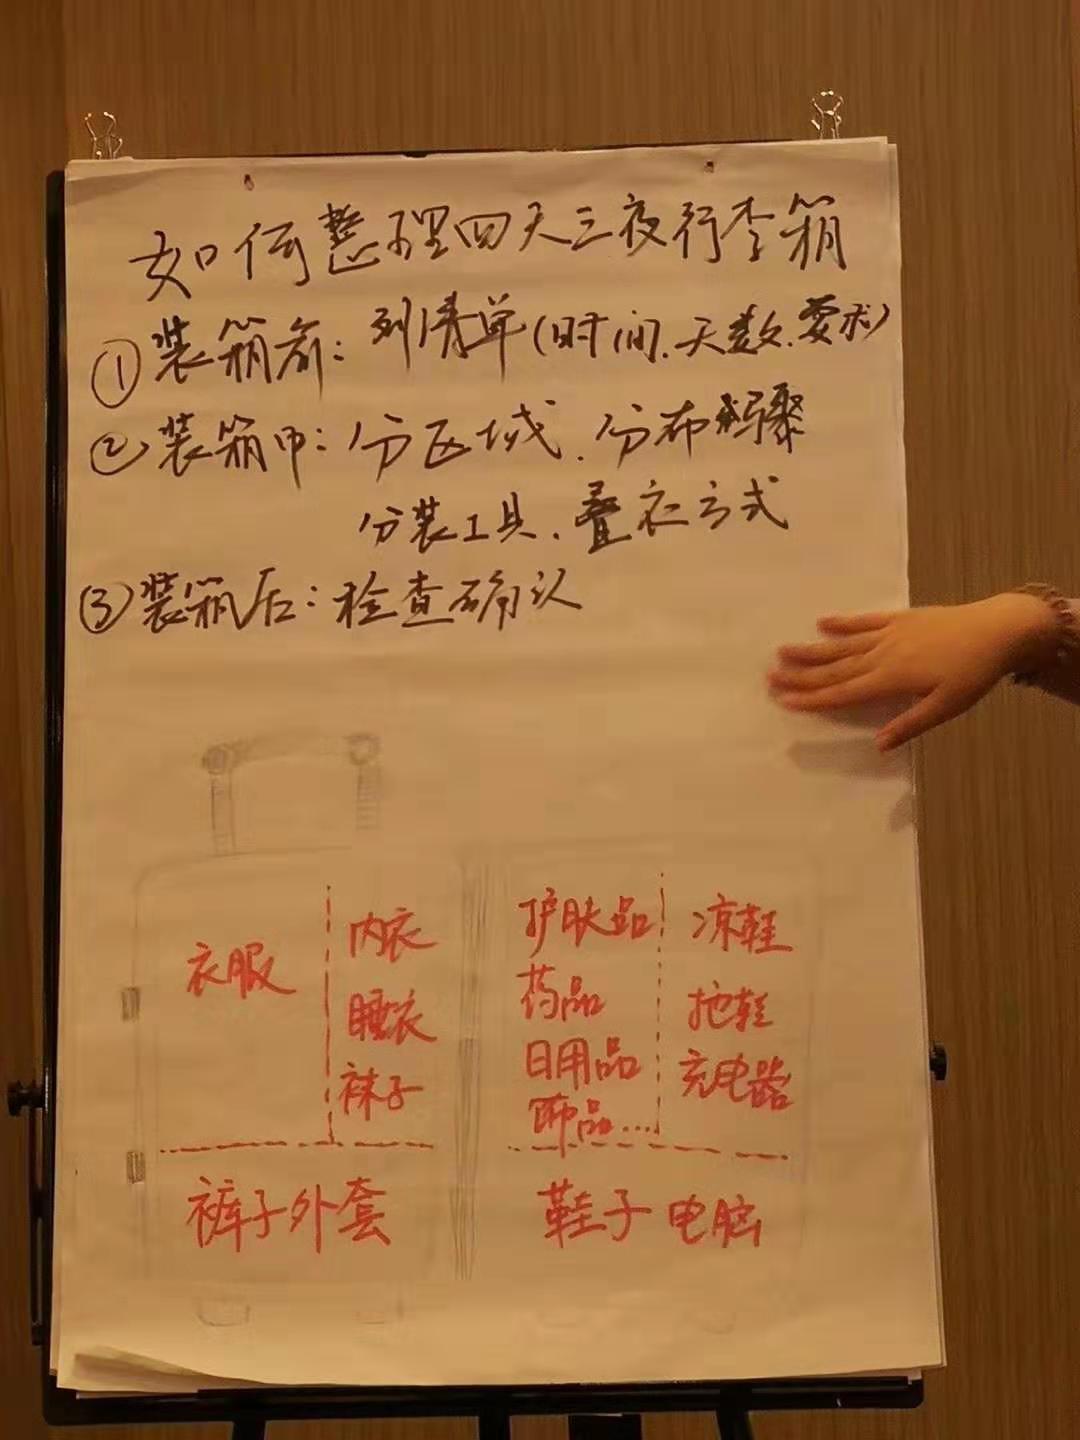 如何整理四天三夜行李箱
①装箱前：列清单(时间、天数、要求)
②装箱中：分区域、分布骤
分装工具、叠衣方式
③装箱后：检查确认
衣服
内衣
睡衣
袜子
裤子外套
护肤品
药品
日用品
饰品...
凉鞋
拖鞋
充电器
鞋子 电脑